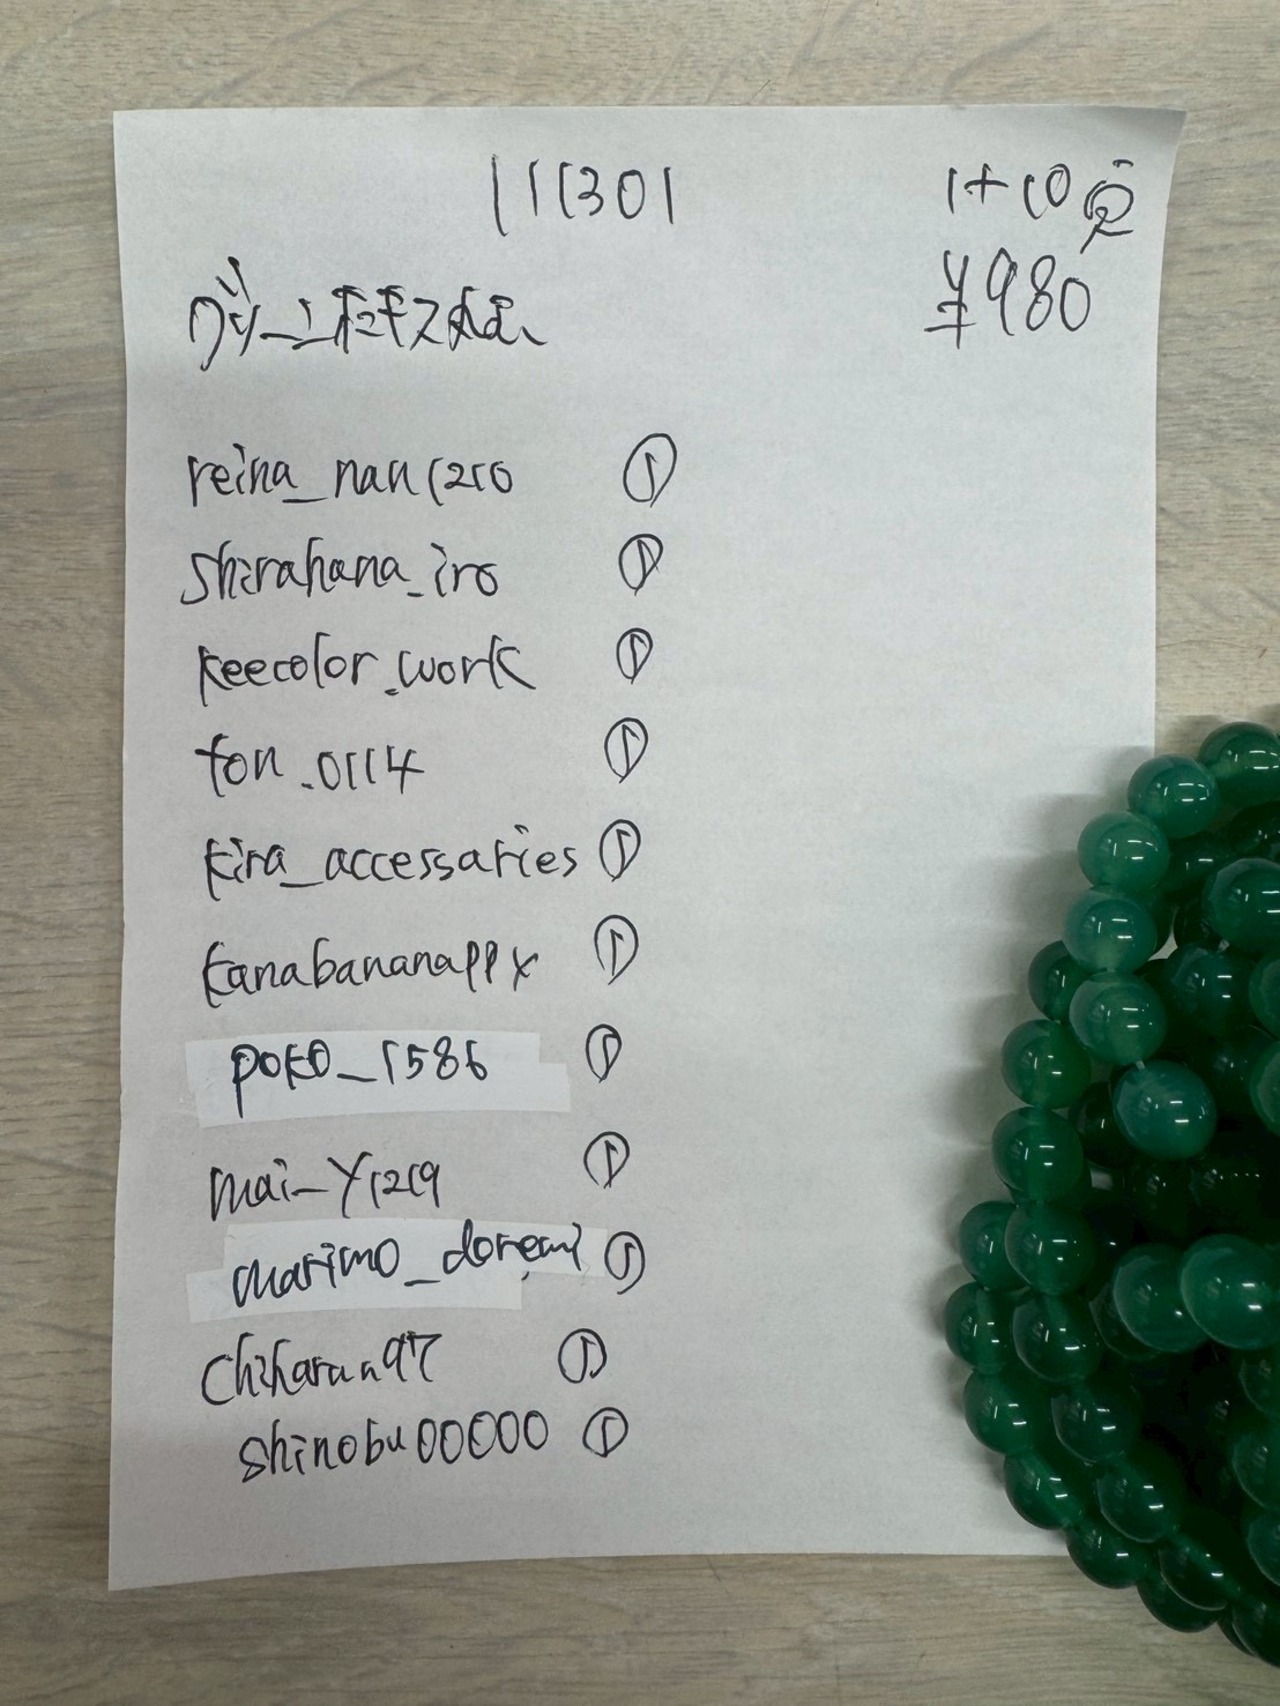 111301
1+10
¥980
reina_nan1210 ①
shirahana_iro ①
keecolor.work ①
ton.0114 ①
kira_accessaries ①
kanabananappx ①
poko_1586 ①
mai_y1219 ①
marimo_doremi ①
chiharun97 ①
shinobu00000 ①